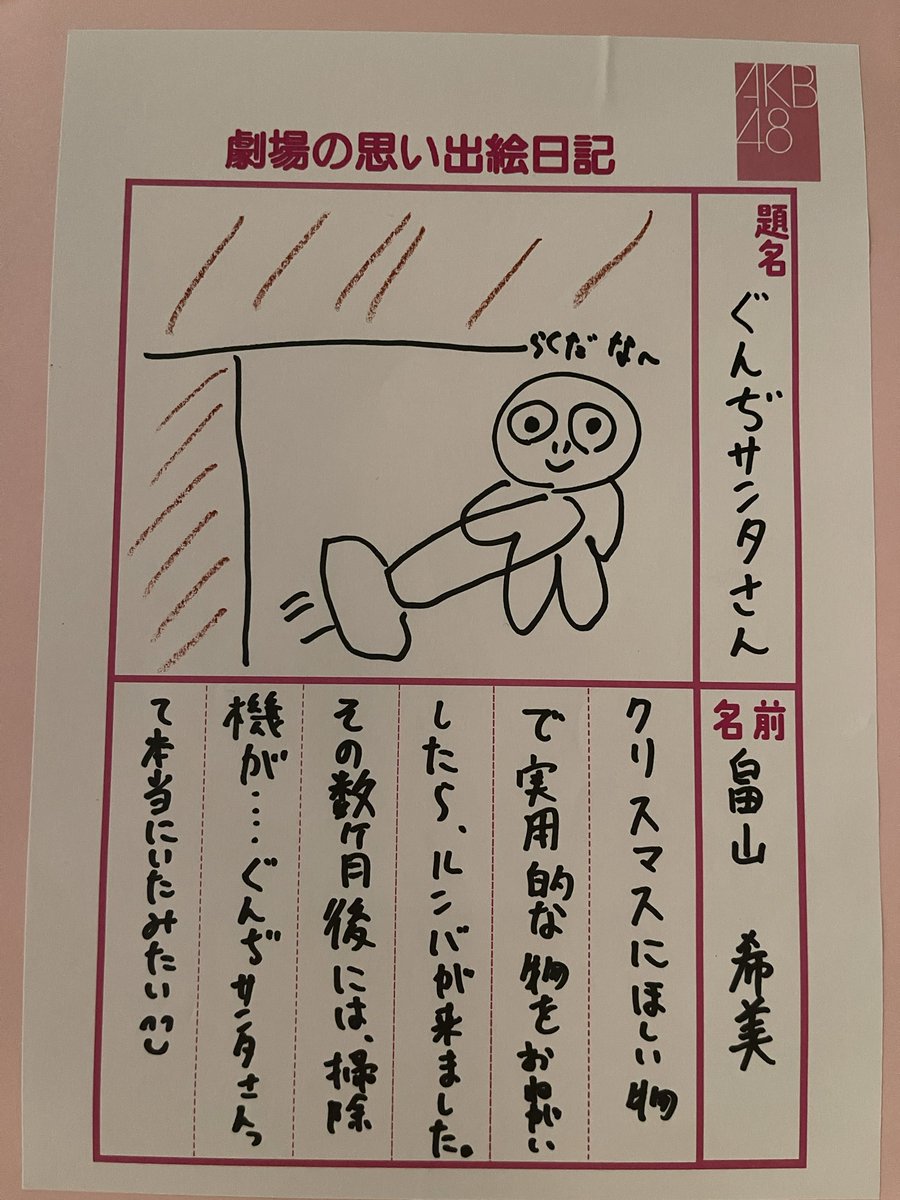 AKB
48
劇場の思い出絵日記
題名
ぐんぢサンタさん
らくだな〜
名前
畠山 希美
クリスマスにほしい物
で実用的な物をおねがい
したら、ルンバが来ました。
その数ヶ月後には、掃除
機が....ぐんぢサンタさんっ
て本当にいたみたい